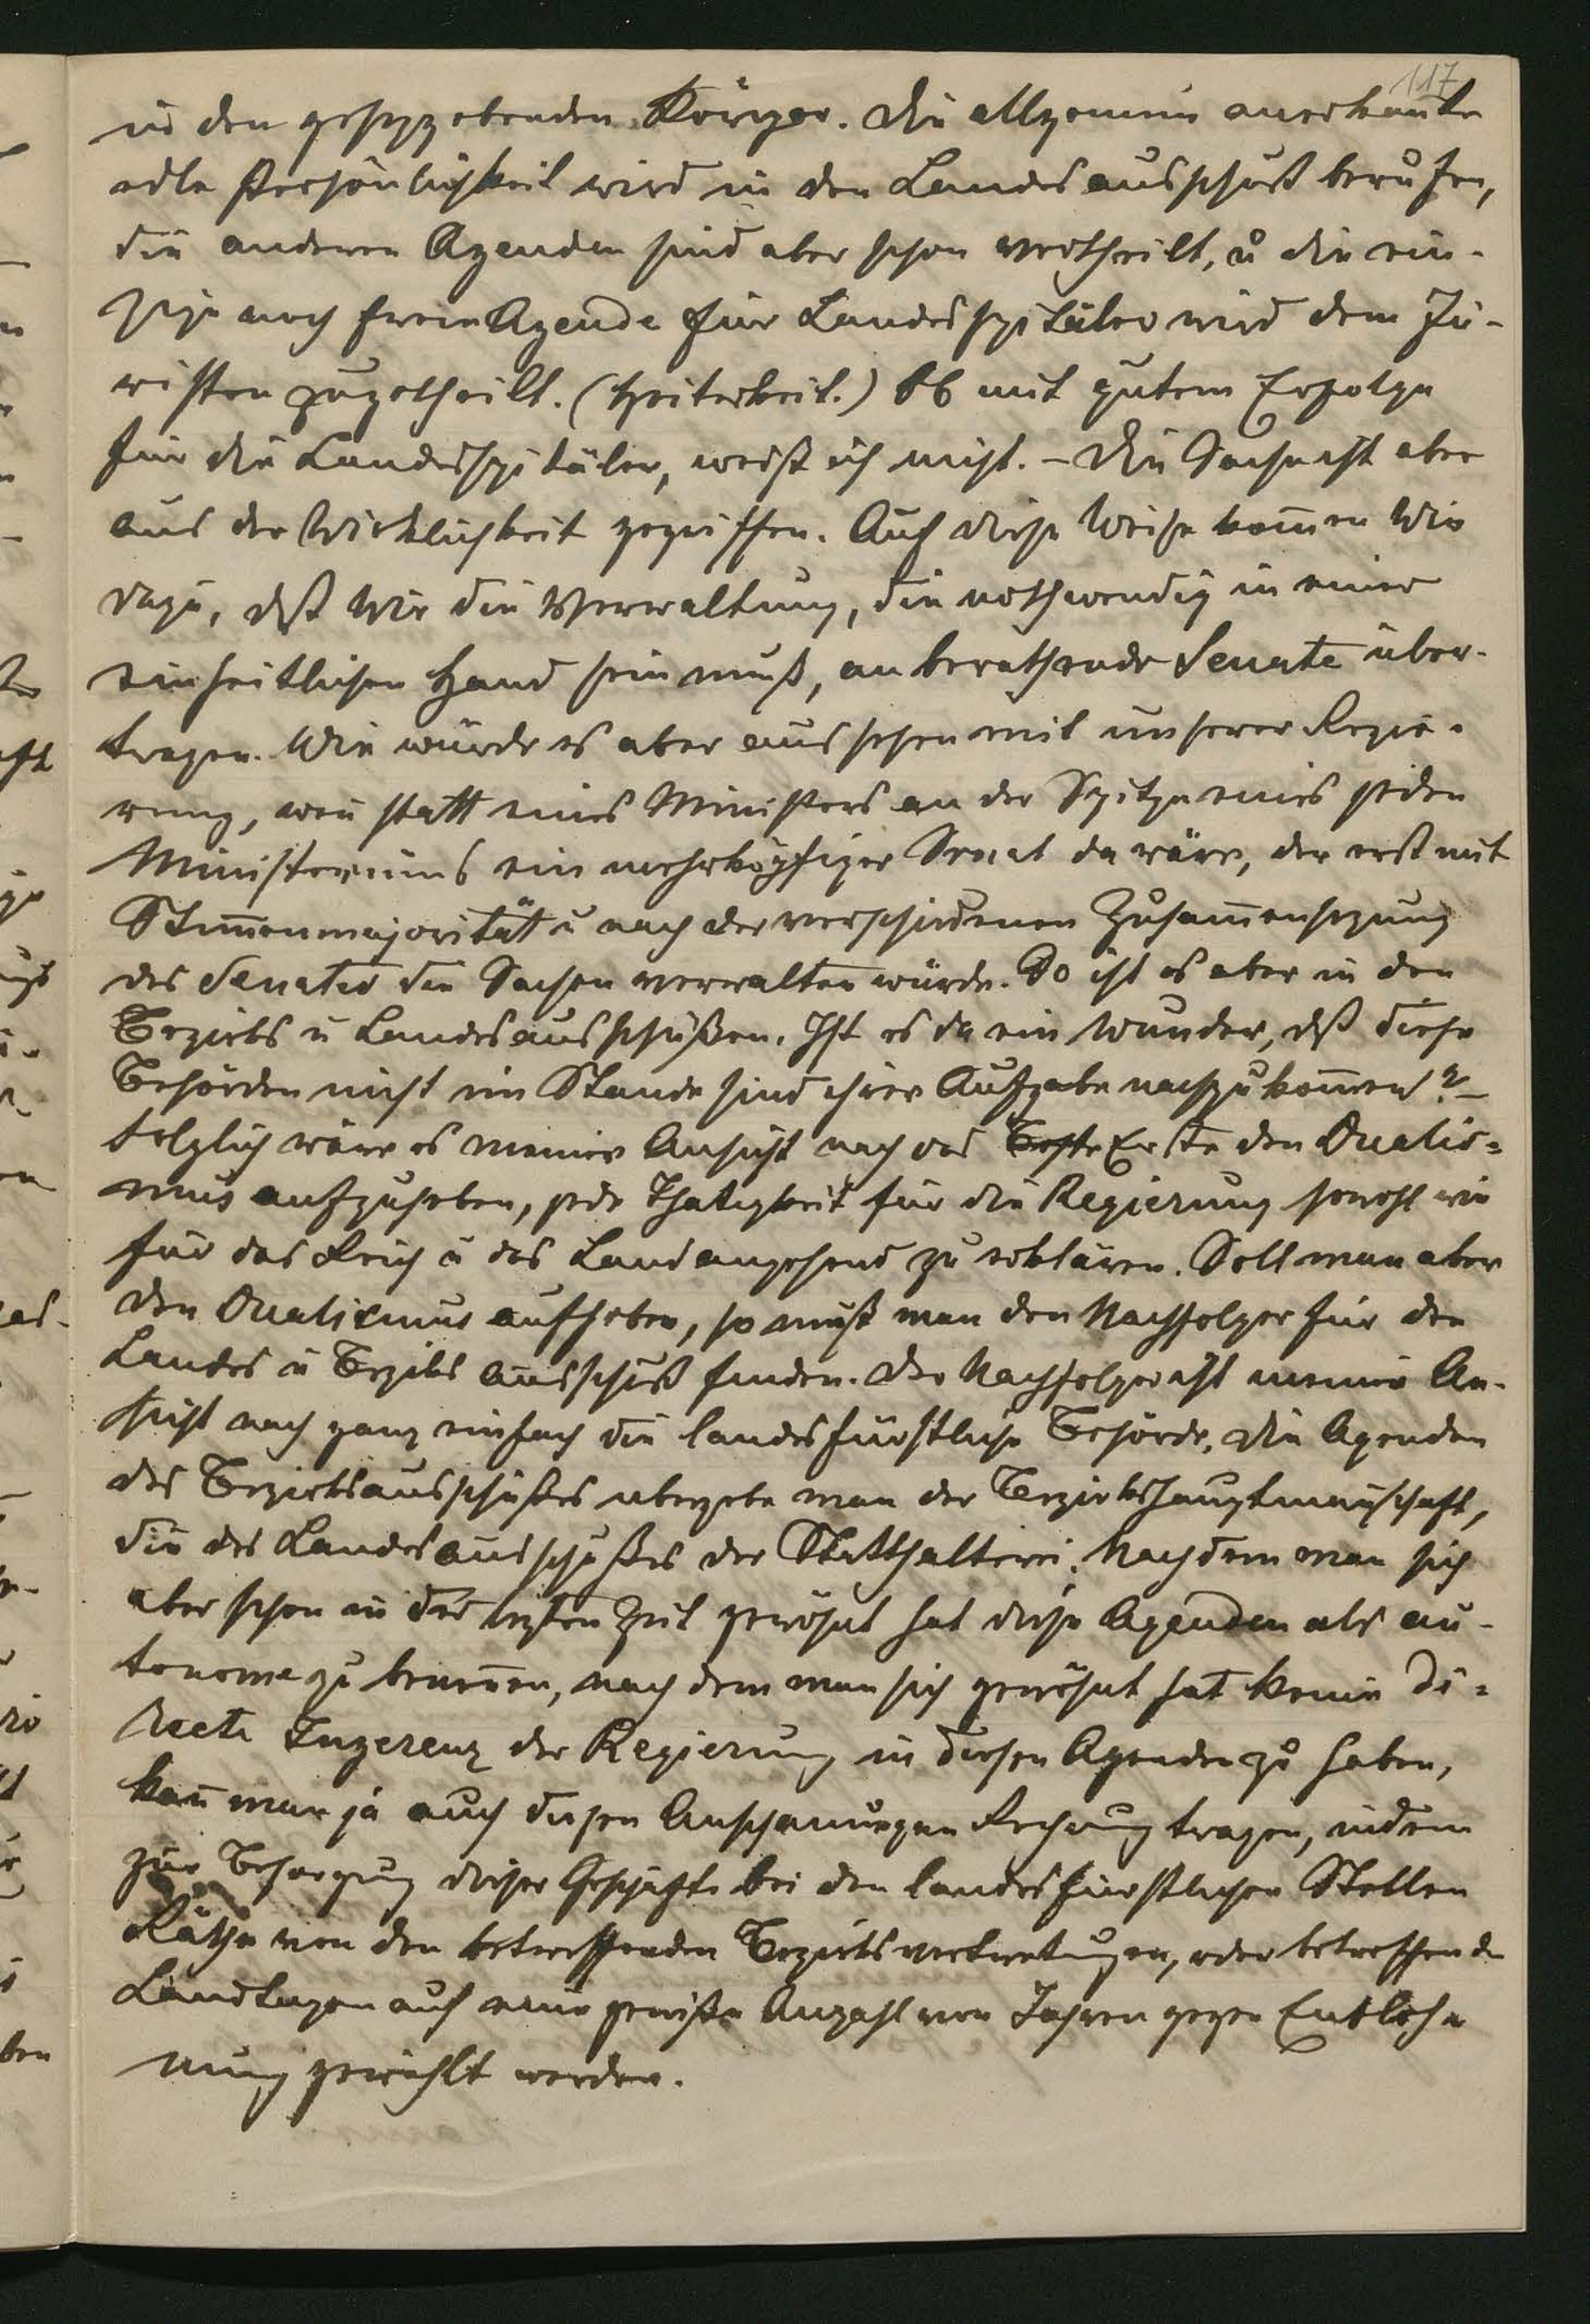 117
in den gesetzgebenden Körper. Die allgemein anerkan̄te
edle Persönlichkeit wird in den Landesausschuß berufen,
die anderen Agenden sind aber schon vertheilt, u die ein-
zige noch freie Agende für Landesspitäler wird dem Ju-
risten zugetheilt. (Heiterkeit.) Ob mit gutem Erfolge
für die Landesspitäler, weiß ich nicht. – Die Sache ist aber
aus der Wirklichkeit gegriffen. Auf diese Weise kom̄en Wir
dazu, dß Wir die Verwaltung, die nothwendig in einer
einheitlichen Hand sein muß, an berathende Senate über-
tragen. Wie würde es aber aussehen mit unserer Regie-
rung, wen̄ statt eines Ministers an der Spitze eines jeden
Ministeriums ein mehrköpfiger Senat da wäre, der erst mit
Stim̄enmajorität u nach der verschiedenen Zusam̄ensezung
des Senates die Sachen verwalten würde. So ist es aber in den
Bezirks u Landesausschüßen. Ist es da ein Wunder, dß diese
Behörden nicht im Stande sind ihrer Aufgabe nachzukom̄en? –
Folglich wäre es meiner Ansicht nach das Erste den Dualis=
mus aufzuheben, jede Thätigkeit für die Regierung sowohl wie
für das Reich u das Land angehend zu erklären. Soll man aber
den Dualismus aufheben, so muß man den Nachfolger für den
Landes u Bezirks ausschuß finden. Der Nachfolger ist meiner An-
sicht nach ganz einfach die landesfürstliche Behörde, die Agenden
des Bezirksausschußes übergebe man der Bezirkshauptman̄schaft,
die des Landesausschußes der Statthalterei. Nachdem man sich
aber schon in der lezten Zeit gewöhnt hat diese Agenden als au-
tonome zu benen̄en, nach dem man sich gewöhnt hat keine di=
recte Ingerenz der Regierung in diesen Agenden zu haben,
kan̄ man ja auch diesen Anschauungen Rechnung tragen, indem
zur Besorgung dieser Geschäfte bei den landesfürstlichen Stellen
Räthe von den betreffenden Bezirksvertretungen, oder betreffenden
Landtagen auf eine gewiße Anzahl von Jahren gegen Entloh
nung gewählt werden.